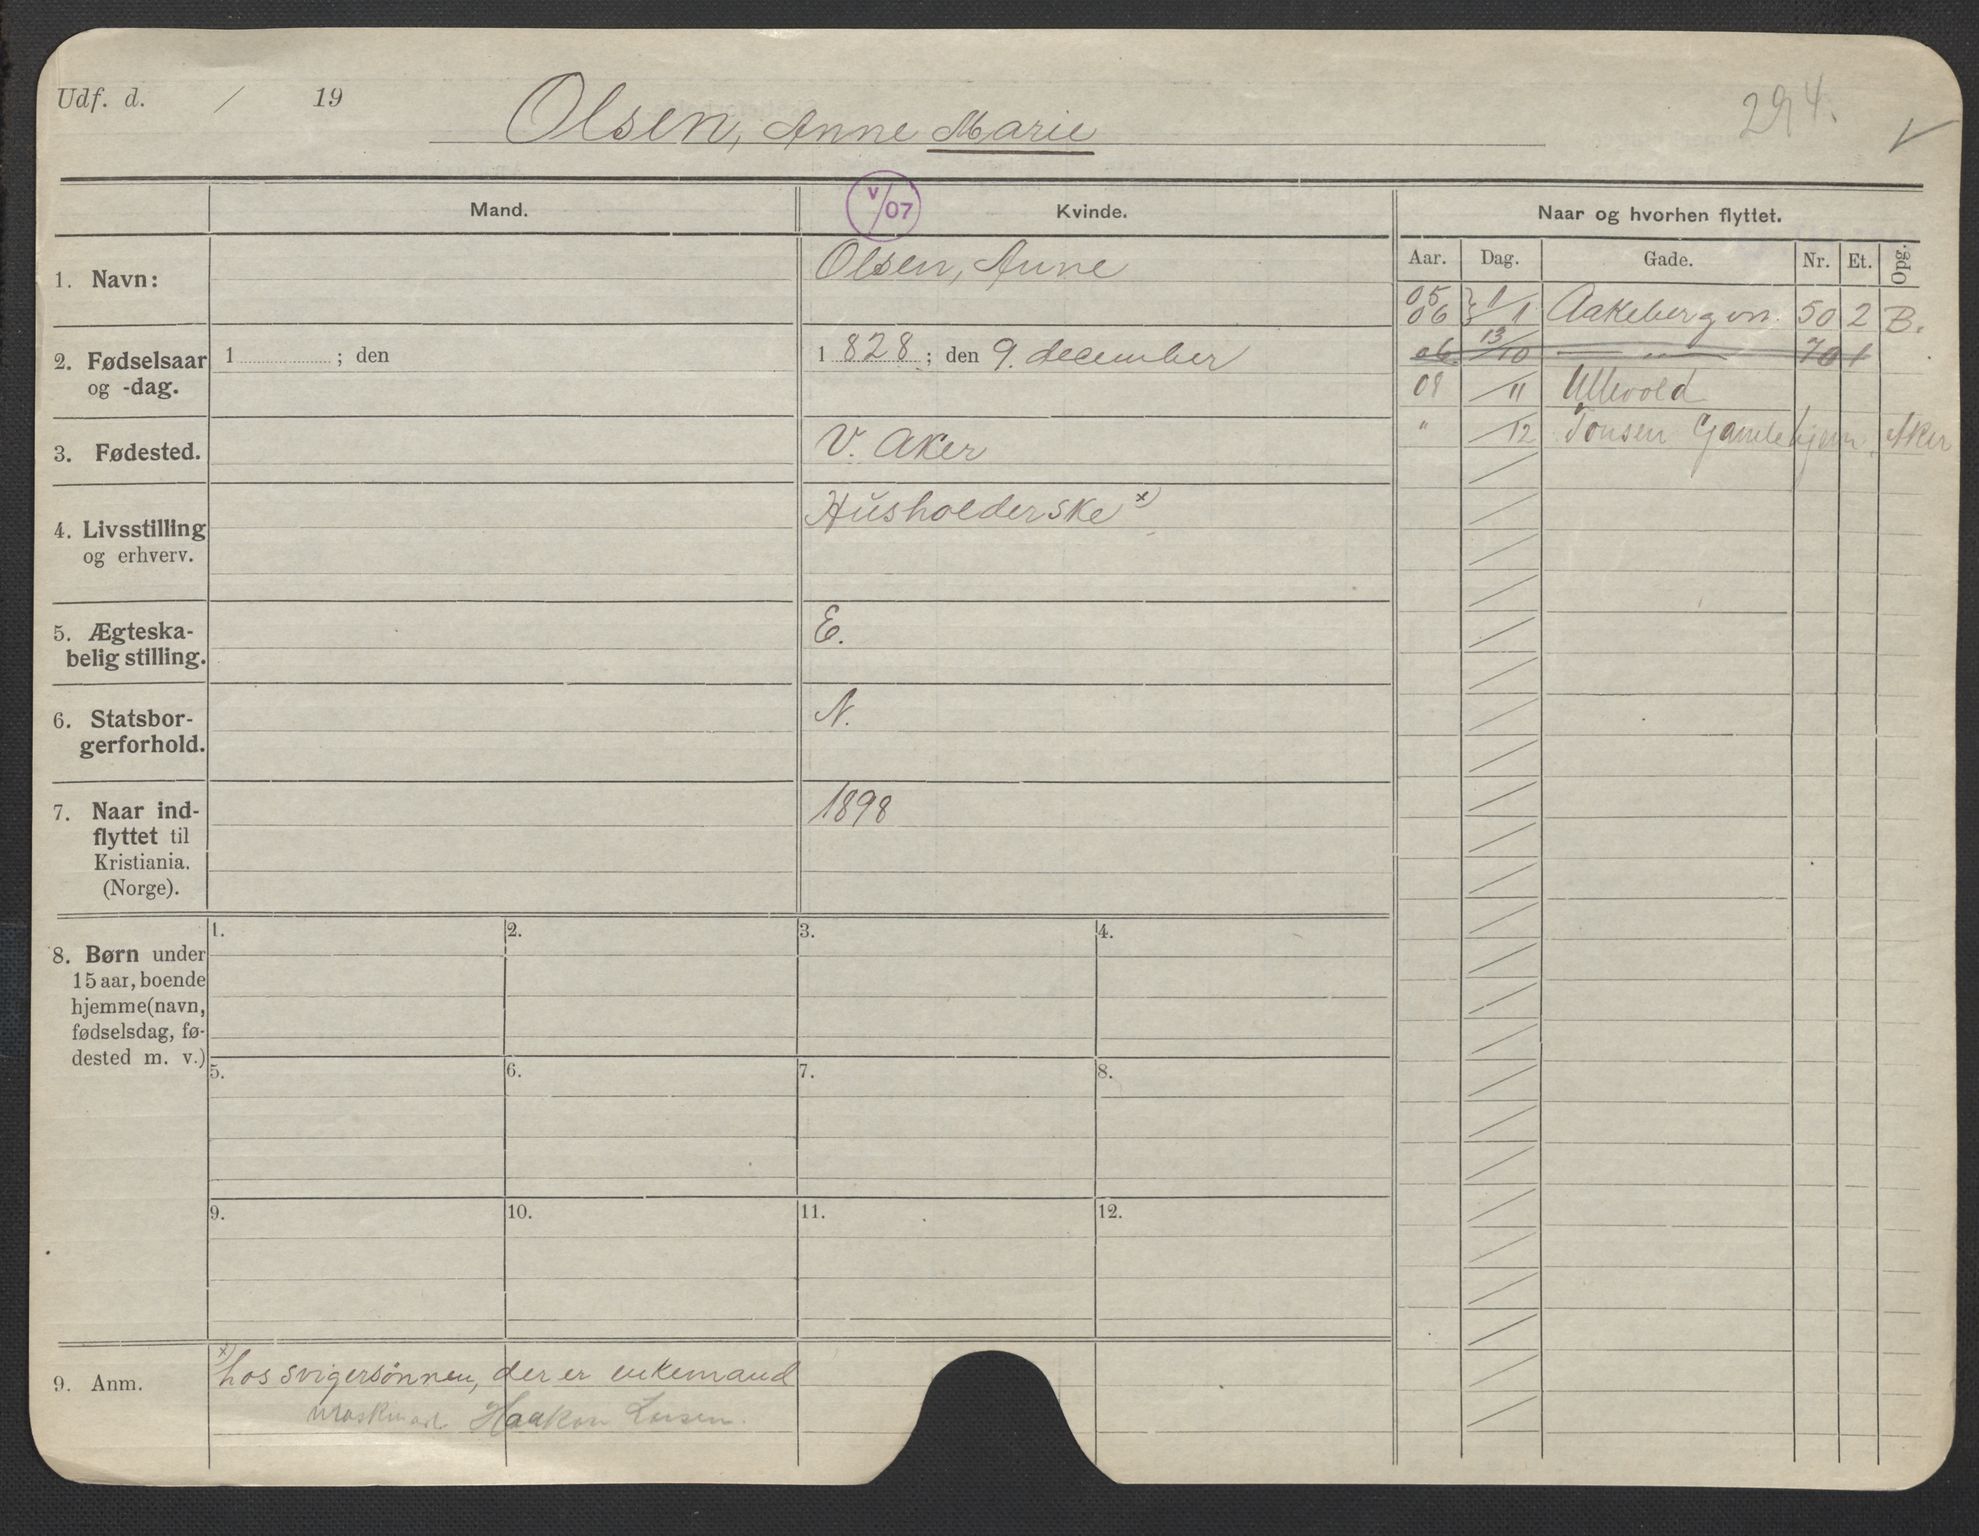 Udf. d. / 19
Olsen, Anne Marie
294.
V
Mand.
V/07
Kvinde.
Naar og hvorhen flyttet.
Aar. Dag. Gade. Nr. Et. Opg.
1. Navn:
Olsen, Anne
05
06 } 1/1 Aakebergvn. 50 2 B.
06 13/10 — „ — 70 1
08 /11 Ullevold
" /12 Tonsen Gamlehjem, Aker
2. Fødselsaar
og -dag.
1 ; den
1 828 ; den 9. december
3. Fødested.
V. Aker
4. Livsstilling
og erhverv.
Husholderske x)
5. Ægteska-
belig stilling.
E.
6. Statsbor-
gerforhold.
N.
7. Naar ind-
flyttet til
Kristiania.
(Norge).
1898
8. Børn under
15 aar, boende
hjemme (navn,
fødselsdag, fø-
dested m. v.)
1. 2. 3. 4.
5. 6. 7. 8.
9. 10. 11. 12.
9. Anm.
x) hos svigersønnen, der er enkemand
Haakon